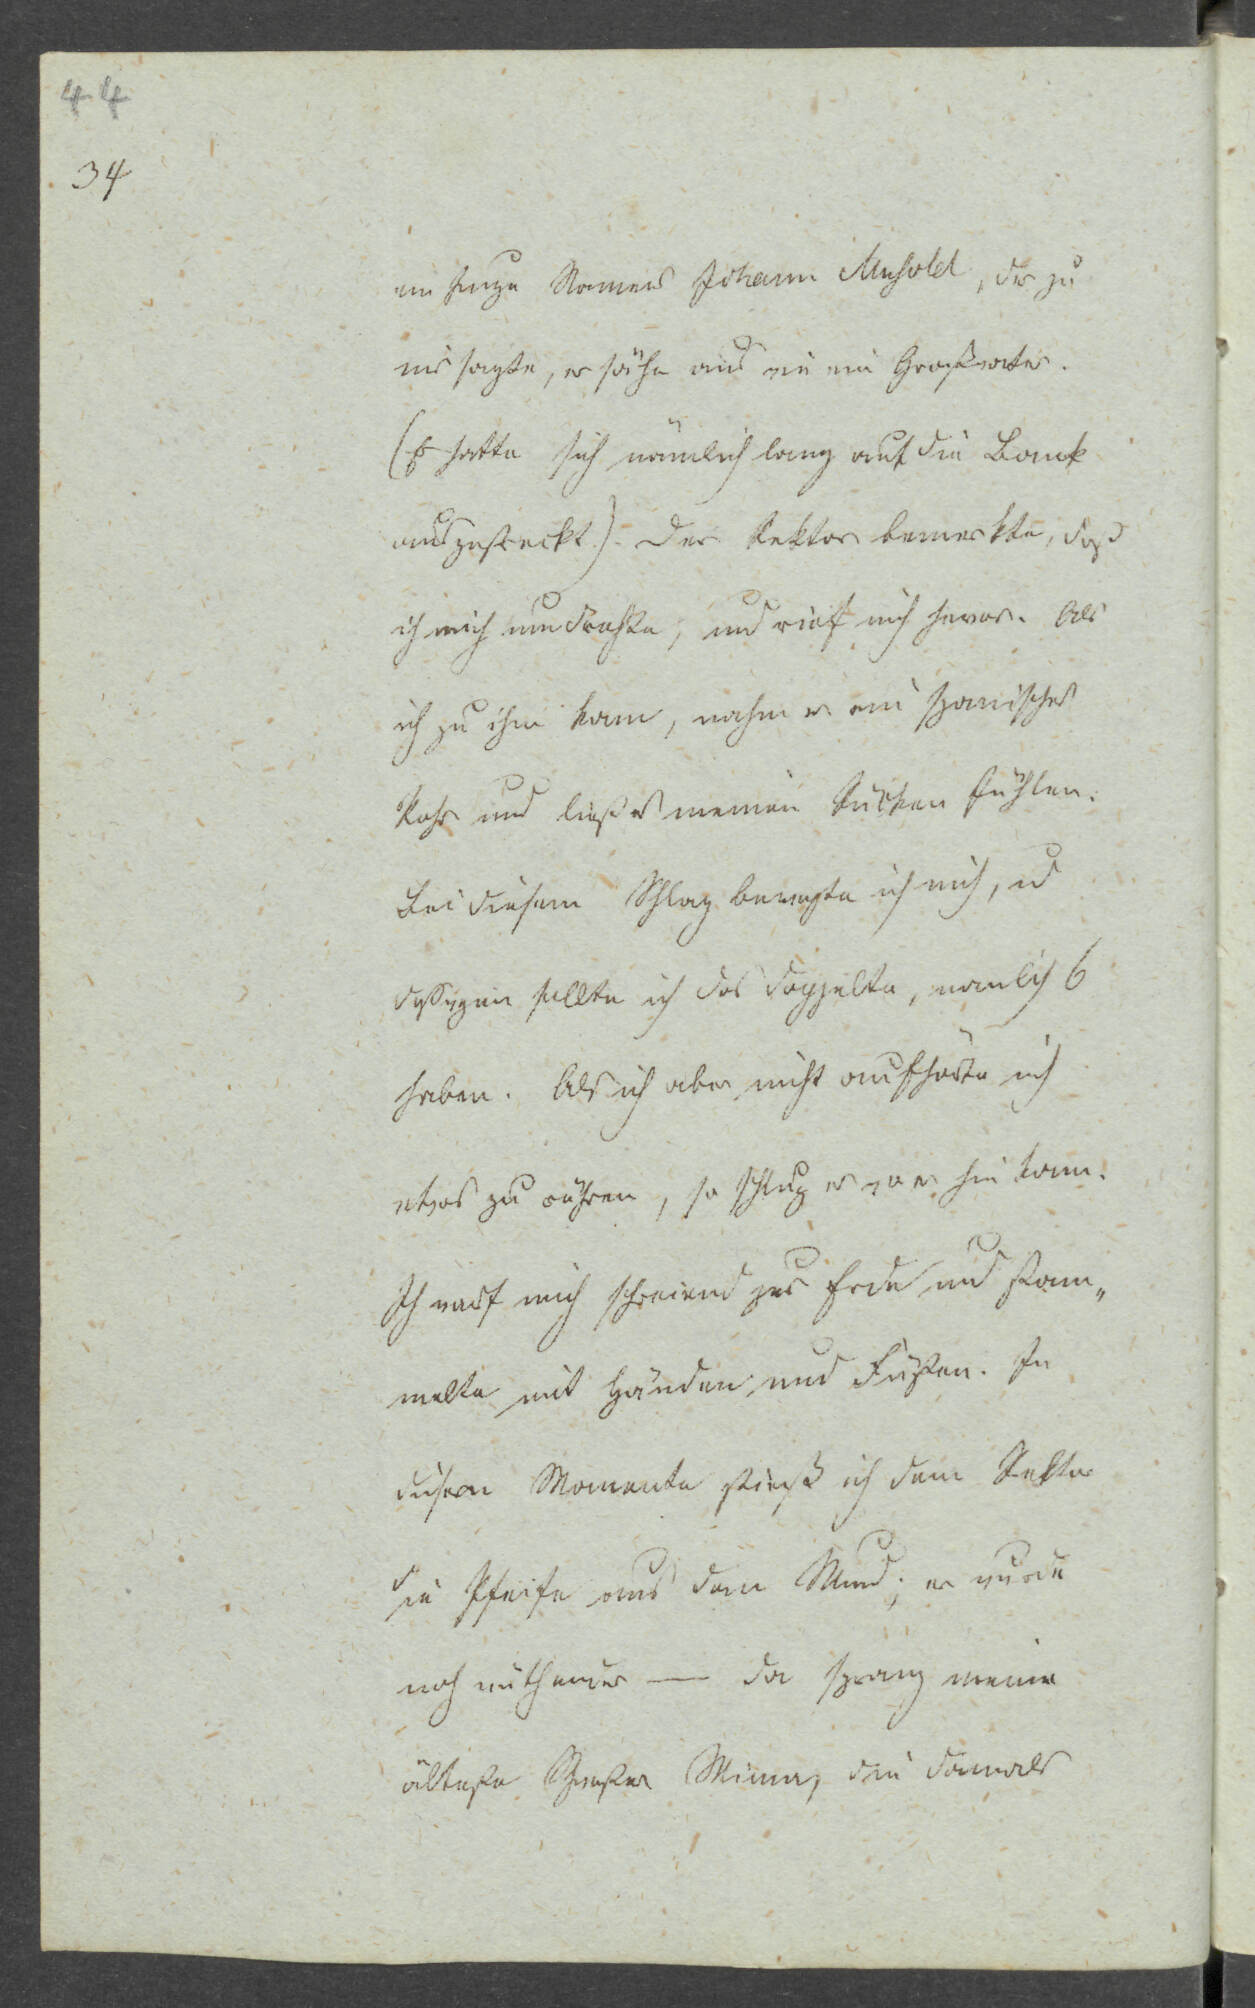 44
34
ein Junge Namens Johann Anhold, der zu
mir sagte, er sähe aus wie ein Großvater.
(Er hatte sich nämlich lang auf die Bank
ausgestreckt). Der Rektor bemerkte, daß
ich mich umdrehte, und rief mich hervor. Als
ich zu ihm kam, nahm er ein spanisches
Rohr und ließ es meinen Rücken fühlen.
Bei diesem Schlag bewegte ich mich, u
deßwegen sollte ich das doppelte, nämlich 6
haben. Als ich aber nicht aufhörte mich
etwas zu rühren, so schlug er wo er hin kam.
Ich warf mich schreiend zur Erde und stram„
melte mit Händen und Füßen. In
diesem Momente stieß ich dem Rektor
die Pfeife aus dem Mund; er wurde
noch wüthender — da sprang meine
älteste Schwester Minna, die damals